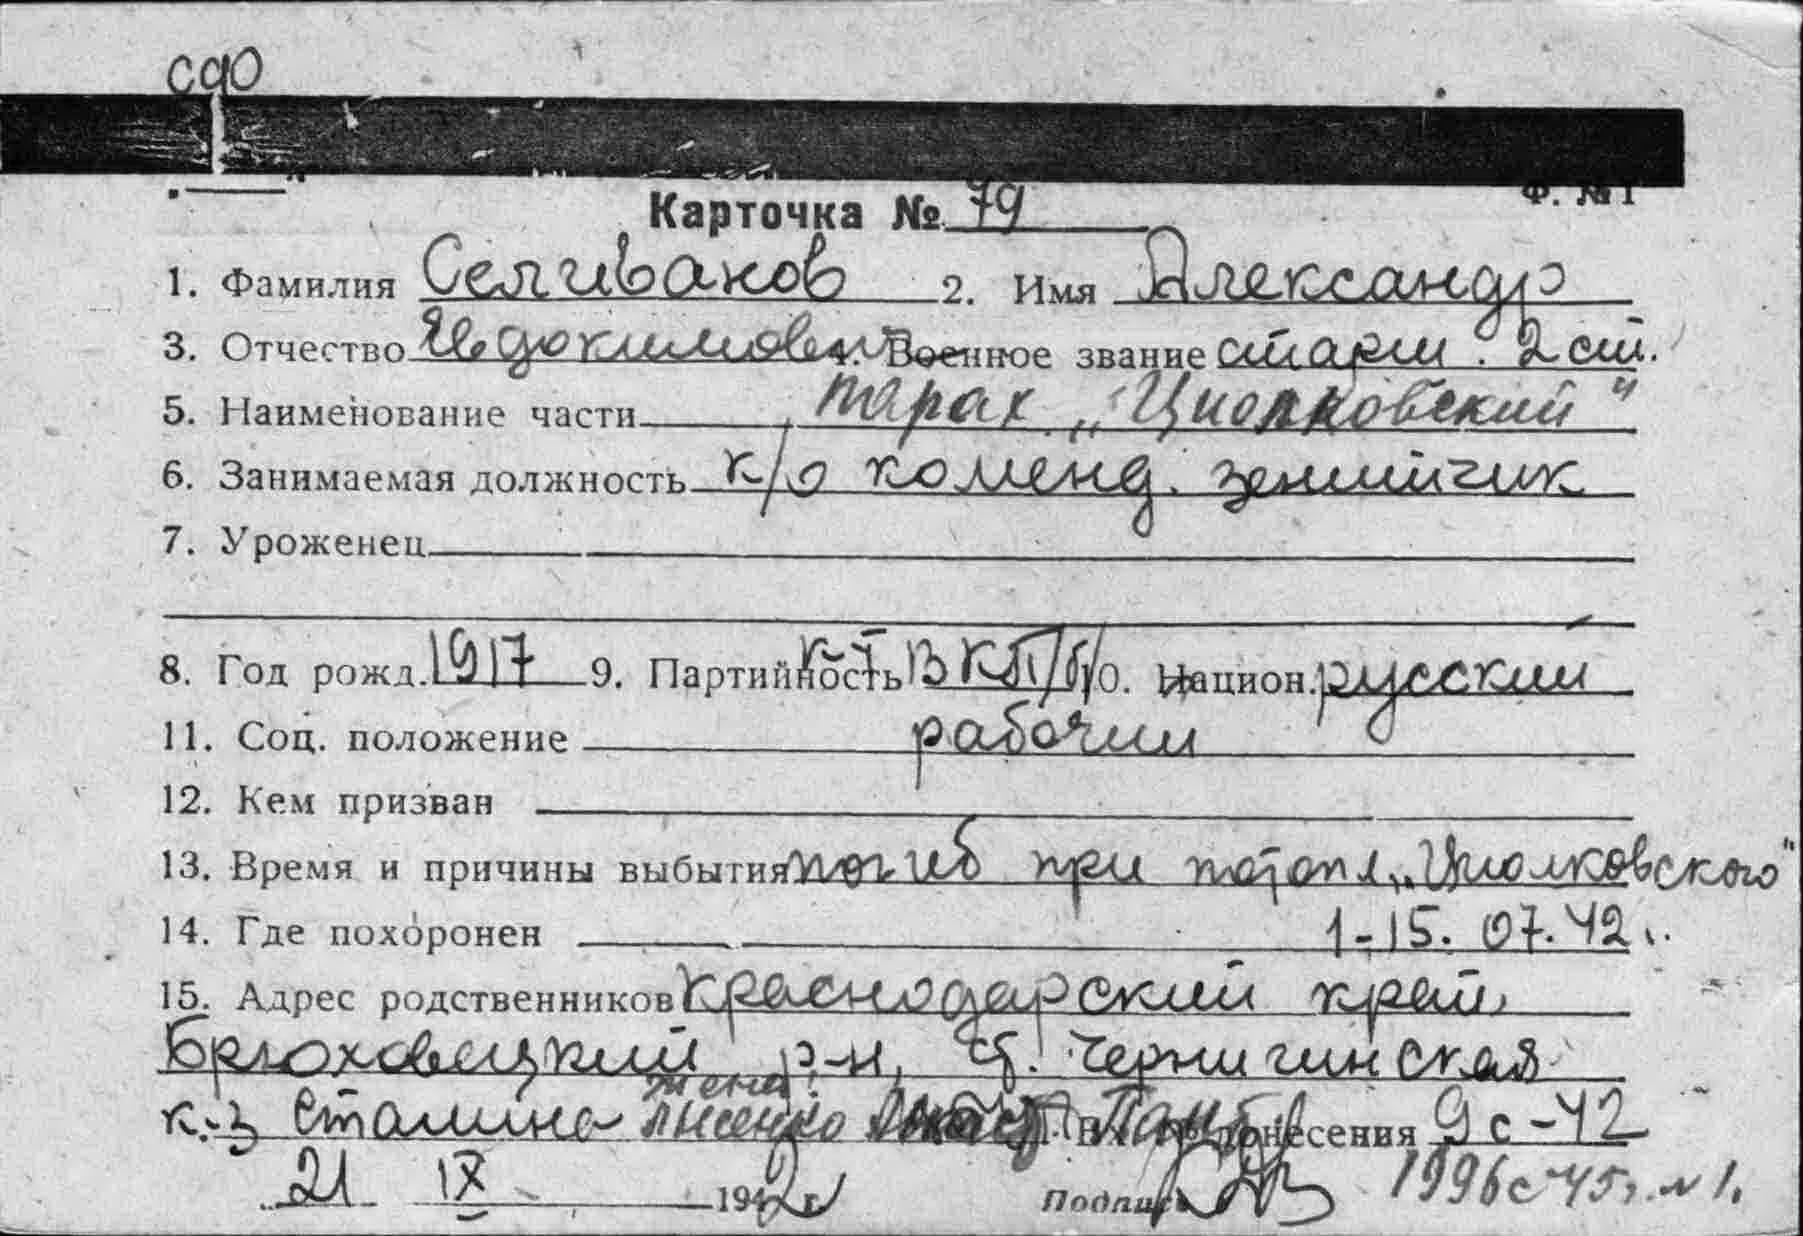 СФО
Ф. №1
Карточка № 79
1. Фамилия Селиванов 2. Имя Александр
3. Отчество Евдокимович 4. Военное звание старш. 2 ст.
5. Наименование части парах. „Циолковский"
6. Занимаемая должность к/о коменд. зенитчик
7. Уроженец
8. Год рожд. 1917 9. Партийность к-т ВКП/б/ 10. Национ. русский
11. Соц. положение рабочий
12. Кем призван
13. Время и причины выбытия погиб при потопл. „Циолковского"
14. Где похоронен 1-15.07.42 г.
15. Адрес родственников Краснодарский край
Брюховецкий р-н, ст. Чернигинская
к-з Сталина жена: Лысенко донесения 9с-42
21 IX 1942 г. Подпись 1996с 45г. №1.